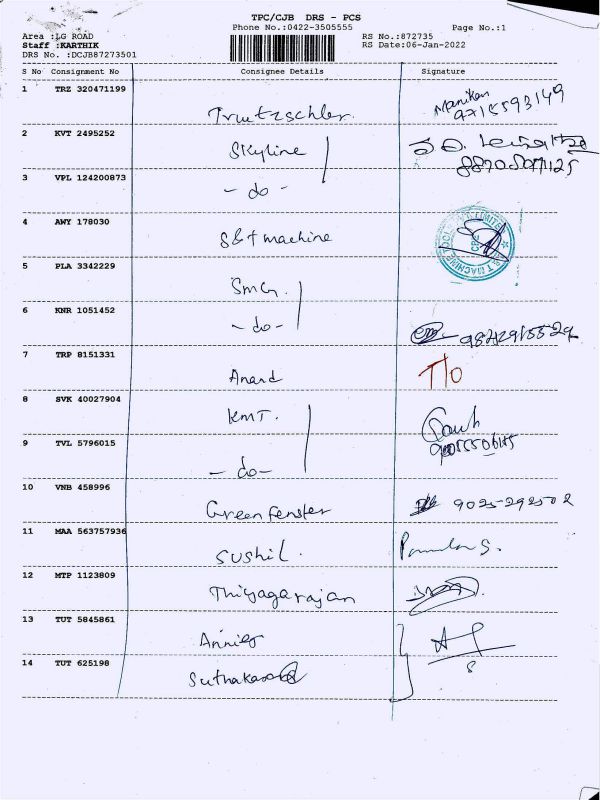 TPC/CJB DRS - PCS
Phone No.:0422-3505555 Page No.:1
Area :LG ROAD RS No.:872735
Staff :KARTHIK RS Date:06-Jan-2022
DRS No. :DCJB87273501
S No Consignment No Consignee Details Signature
1 TRZ 320471199 Truetzschler. Manikan 9715593149
2 KVT 2495252 Skyline
3 VPL 124200873 - do -
4 AWY 178030 S&T machine
5 PLA 3342229 SMG.
6 KNR 1051452 - do -
7 TRP 8151331 Anand T/O
8 SVK 40027904 KMT.
9 TVL 5796015 - do -
10 VNB 458996 Greenfenster 9025-292502
11 MAA 563757936 Sushil.
12 MTP 1123809 Thiyagarajan
13 TUT 5845861 Annies
14 TUT 625198